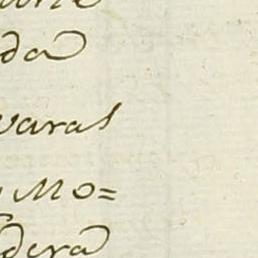 da
varas
y Mo=
dera